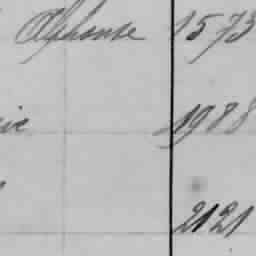 Alphonse 1573
1988
2121